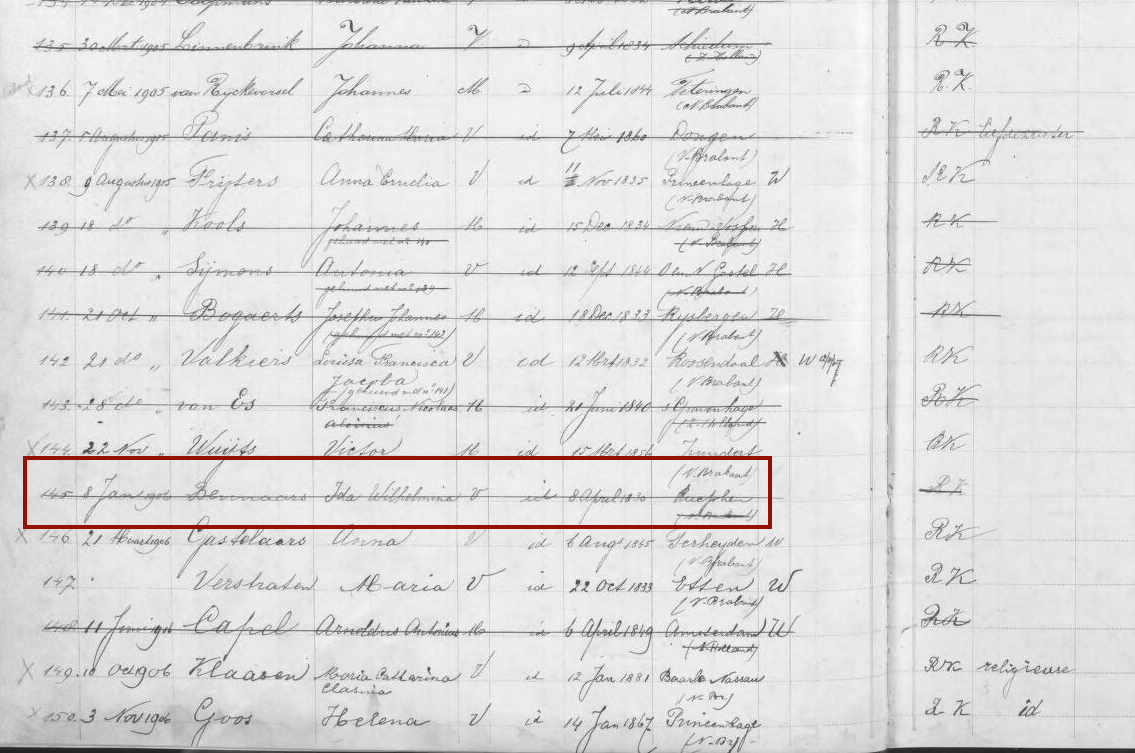 135 30 Mrt 1905 Linnenbrink Johanna V 9 April 1834 Schiedam R K
(Z. Holland)
136. 7 Mei 1905 van Ryckevorsel Johannes M 12 Juli 1844 Teteringen R.K.
(N. Brabant)
137. 5 Augustus 1905 Catharina Maria V id 7 Mei 1860 Dongen R K liefdezuster
(N. Brabant)
X 138. 9 Augustus 1905 Frijters Anna Cornelia V id 11 Nov 1835 Princenhage W R K
(N. Brabant)
139 18 do " Kools Johannes M id 15 Dec 1834 H R K
gehuwd met no 140
140 18 do " Sijmons Antonia V id 12 Sept 1844 Oud en N Gastel H R K
gehuwd met no 139 (N. Brabant)
141. 21 Oct " Bogaerts Josephus Johannes M id 18 Dec 1833 Rijsbergen H R K
(N. Brabant)
142 21 do " Valkiers Louisa Francisca V id 12 Mrt 1832 Roosendaal W R K
Jacoba (N. Brabant)
(gehuwd met no 141)
143. 28 do " van Es Franciscus Nicolaas M id 21 Juni 1840 s Gravenhage R K
Aloisius (Z. Holland)
X 144. 22 Nov " Wuijts Victor M id 15 Mrt 1856 Zundert R K
(N. Brabant)
145 8 Jan 1906 Bennaars Ida Wilhelmina V id 8 April 1830 Rucphen R K
(N. Brabant)
X 146 21 Maart 1906 Gastelaars Anna V id 6 Augs 1845 Terheyden W R K
(N. Brabant)
147 Vershaten Maria V id 22 Oct 1833 Etten W R K
(N. Brabant)
148 11 Juni 1906 Capel Arnoldus Antonius M id 6 April 1849 Amsterdam W R K
(N. Holland)
X 149. 10 Oct 1906 Klaasen Maria Catharina V id 12 Jan 1881 Baarle Nassau R K religieuse
Clasina (N. Br)
X 150. 3 Nov 1906 Goos Helena V id 14 Jan 1867 Princenhage R K id
(N. Br)